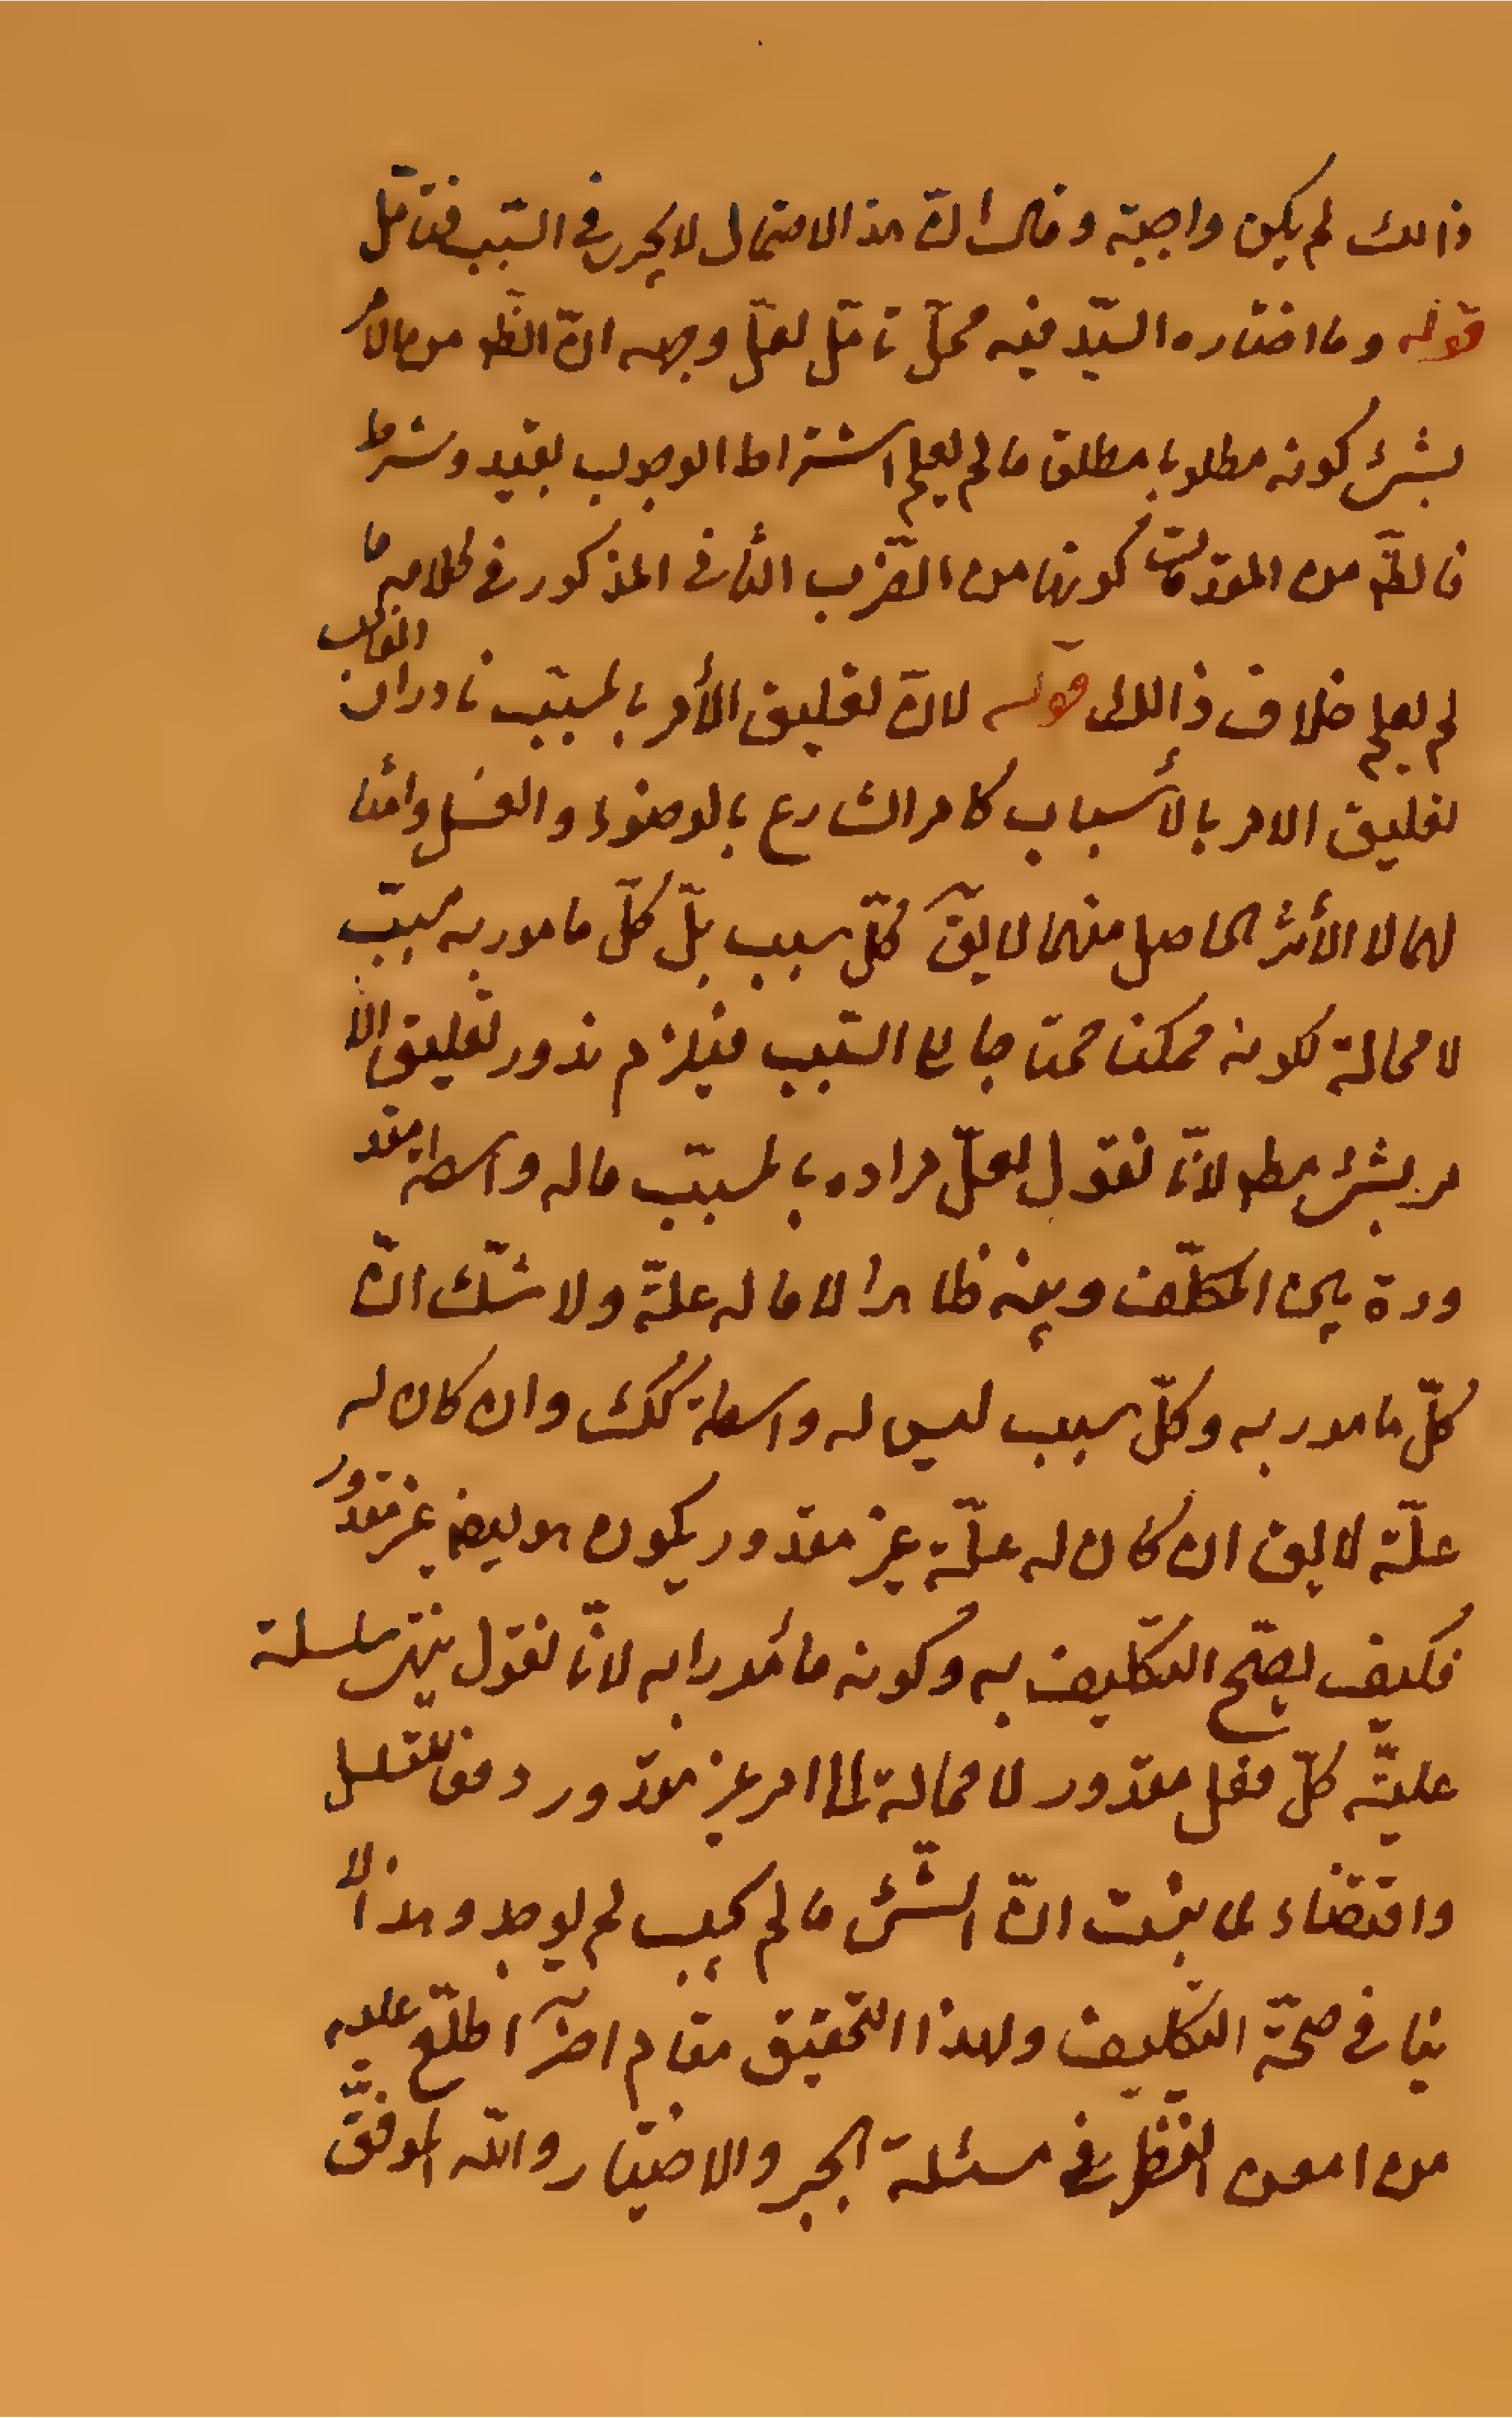 ذالك لم يكن واجبة وقال ان هذا الاحتمال لا يجرى فى السّبب فتامّل
قوله وما اختاره السيّد فيه محلّ تامّل لعلّ وجهه انّ الظ من الامر
بشئ كونه مطلوبا مطلقا ما لم يعلم اشتراط الوجوب بقيد وشرط
فالظّ من المقدمت كونها من الضّرب الثانى المذكور فى كلامه ما
لم يعلم خلاف ذالك قوله لانّ تعليق الأمر بالمسبّب نادر ان الغالب
تعليق الامر بالأسباب كامر الشارع بالوضوء والغسل وامثا
لهما لا الأثر الحاصل منهما لا يقّ كلّ سبب بلّ كلّ مامور به مسبّب
لا محالة لكونه ممكنا محتاجا الى السّبب فيلزم ندور تعليق الا
مر بشئ مط لانّا نقول لعلّ مراده بالمسبّب ما له واسطة مقد
ورة بين المكلّف وبينه ظاهرا لا ما له علّة ولا شّك انّ
كلّ مامور به وكلّ سبب ليس له واسطة كك وان كان له
علّة لا يق ان كان له علّة غير مقدور يكون هو ايض غير مقدور
فكيف يصّح التكليف به وكونه مأمورا به لانّا نقول ينتهى سلسلة
عليّة كلّ فعل مقدور لا محالة الى امر غير مقدور دفعا للتسلسل
واقتضاء لما يثبت انّ الشّئ ما لم يجب لم يوجد وهذا لا
ينافى صحّة التكليف ولهذا التحقيق مقام اخرّ اطلّع عليه
من امعن النّظر فى مسئلة الجبر والاختيار والله الموفّق